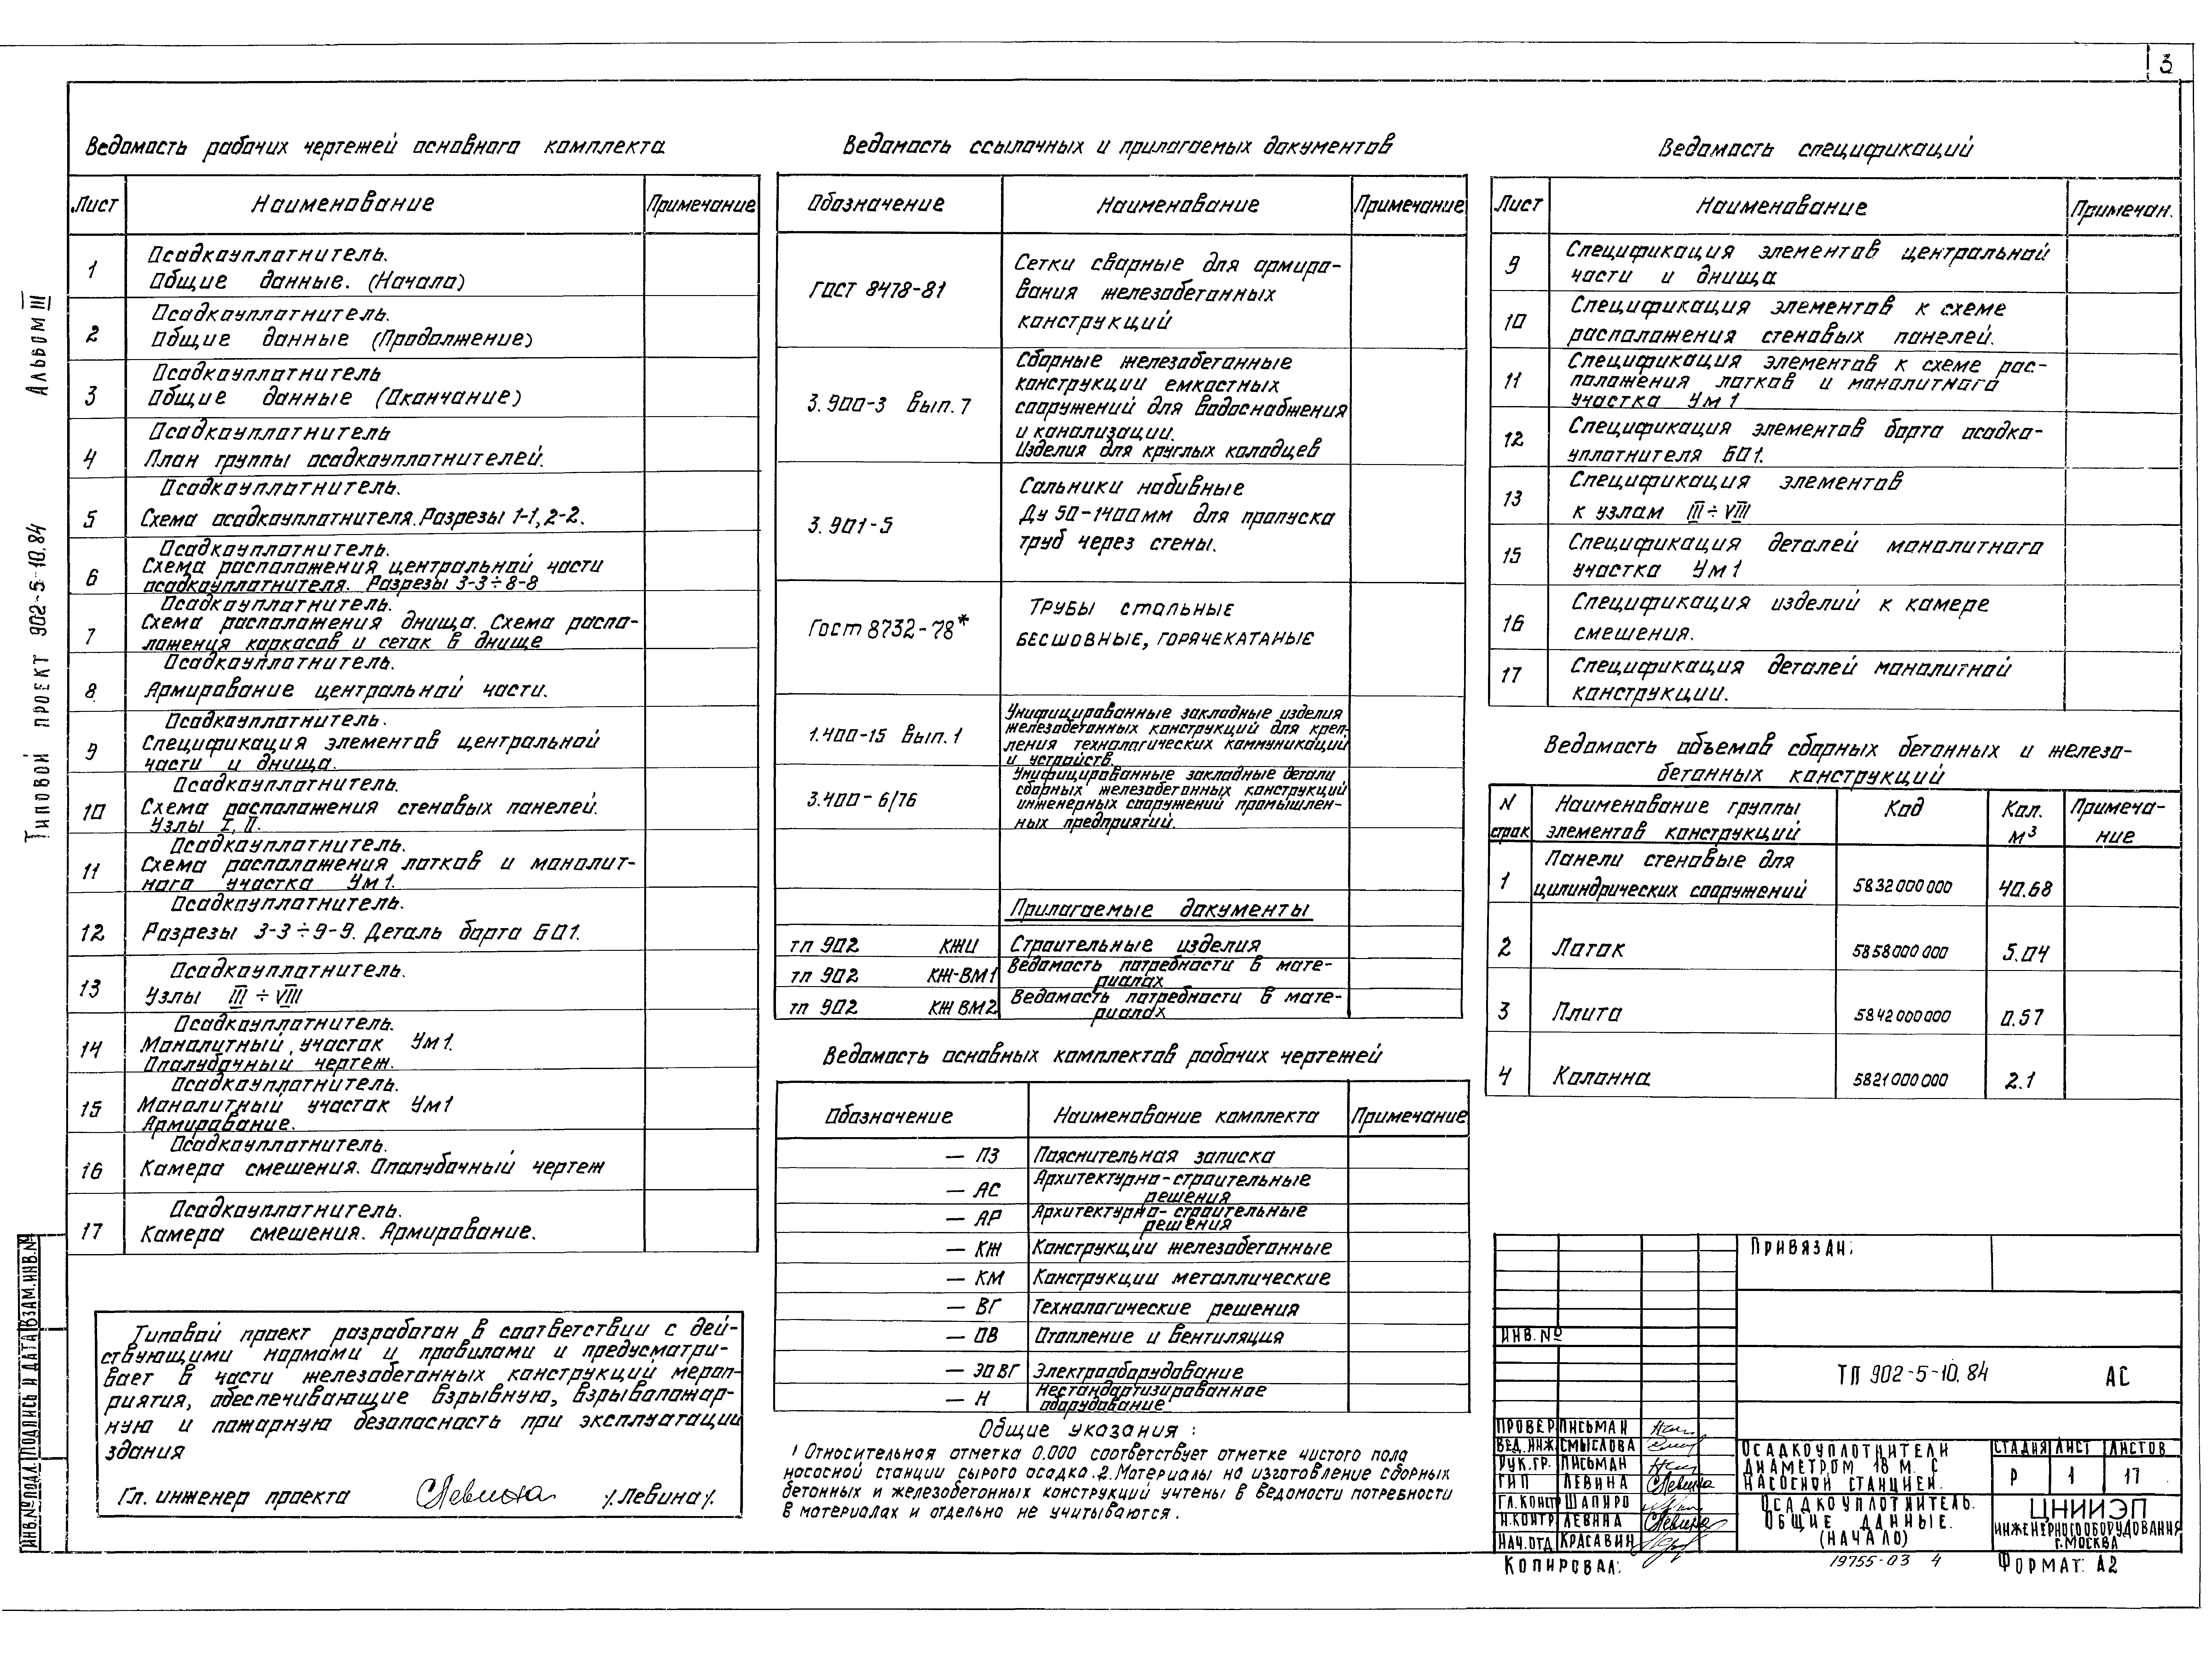 3
Альбом III
Типовой проект 902-5-10.84
Ведомость рабочих чертежей основного комплекта
Лист Наименование Примечание
1 Осадкоуплотнитель.
Общие данные. (Начало)
2 Осадкоуплотнитель.
Общие данные (Продолжение)
3 Осадкоуплотнитель
Общие данные (Окончание)
4 Осадкоуплотнитель
План группы осадкоуплотнителей.
5 Осадкоуплотнитель.
Схема осадкоуплотнителя. Разрезы 1-1, 2-2.
6 Осадкоуплотнитель.
Схема расположения центральной части
осадкоуплотнителя. Разрезы 3-3÷8-8
7 Осадкоуплотнитель.
Схема расположения днища. Схема распо-
ложения каркасов и сеток в днище
8 Осадкоуплотнитель.
Армирование центральной части.
9 Осадкоуплотнитель.
Спецификация элементов центральной
части и днища.
10 Осадкоуплотнитель.
Схема расположения стеновых панелей.
Узлы I, II.
11 Осадкоуплотнитель.
Схема расположения лотков и монолит-
ного участка Ум1.
12 Осадкоуплотнитель.
Разрезы 3-3÷9-9. Деталь борта БО1.
13 Осадкоуплотнитель.
Узлы III ÷ VIII
14 Осадкоуплотнитель.
Монолитный участок Ум1.
Опалубочный чертеж.
15 Осадкоуплотнитель.
Монолитный участок Ум1
Армирование.
16 Осадкоуплотнитель.
Камера смешения. Опалубочный чертеж
17 Осадкоуплотнитель.
Камера смешения. Армирование.
Типовой проект разработан в соответствии с дей-
ствующими нормами и правилами и предусматри-
вает в части железобетонных конструкций мероп-
риятия, обеспечивающие взрывную, взрывопожар-
ную и пожарную безопасность при эксплуатации
здания
Гл. инженер проекта /Левина/.
Ведомость ссылочных и прилагаемых документов
Обозначение Наименование Примечание
ГОСТ 8478-81 Сетки сварные для армиро-
вания железобетонных
конструкций
3.900-3 Вып. 7 Сборные железобетонные
конструкции емкостных
сооружений для водоснабжения
и канализации.
Изделия для круглых колодцев
3.901-5 Сальники набивные
Ду 50-1400мм для пропуска
труб через стены.
Гост 8732-78* Трубы стальные
бесшовные, горячекатаные
1.400-15 Вып. 1 Унифицированные закладные изделия
железобетонных конструкций для креп-
ления технологических коммуникаций
и устройств.
3.400-6/76 Унифицированные закладные детали
сборных железобетонных конструкций
инженерных сооружений промышлен-
ных предприятий.
Прилагаемые документы
тп 902 КЖИ Строительные изделия
тп 902 КЖ-ВМ1 Ведомость потребности в мате-
риалах
тп 902 КЖ ВМ2 Ведомость потребности в мате-
риалах
Ведомость основных комплектов рабочих чертежей
Обозначение Наименование комплекта Примечание
— ПЗ Пояснительная записка
— АС Архитектурно-строительные
решения
— АР Архитектурно-строительные
решения
— КЖ Конструкции железобетонные
— КМ Конструкции металлические
— ВГ Технологические решения
— ОВ Отопление и вентиляция
— ЭО ВГ Электрооборудование
— Н Нестандартизированное
оборудование
Общие указания :
1 Относительная отметка 0.000 соответствует отметке чистого пола
насосной станции сырого осадка. 2. Материалы на изготовление сборных
бетонных и железобетонных конструкций учтены в ведомости потребности
в материалах и отдельно не учитываются.
Ведомость спецификаций
Лист Наименование Примечан.
9 Спецификация элементов центральной
части и днища
10 Спецификация элементов к схеме
расположения стеновых панелей.
11 Спецификация элементов к схеме рас-
положения лотков и монолитного
участка Ум1
12 Спецификация элементов борта осадко-
уплотнителя БО1.
13 Спецификация элементов
к узлам III ÷ VIII
15 Спецификация деталей монолитного
участка Ум1
16 Спецификация изделий к камере
смешения.
17 Спецификация деталей монолитной
конструкции.
Ведомость объемов сборных бетонных и железо-
бетонных конструкций
N Наименование группы Код Кол. Примеча-
строк элементов конструкций м³ ние
1 Панели стеновые для
цилиндрических сооружений 5832000000 40.68
2 Лоток 5858000000 5.04
3 Плита 5842000000 0.57
4 Колонна 5821000000 2.1
Привязан:
Инв. №
ТП 902-5-10.84 АС
Провер Письман
Вед. инж. Смыслова
Рук. гр. Письман
ГИП Левина
Гл. констр Шапиро
Н. контр Левина
Нач. отд Красавин
Осадкоуплотнители
диаметром 18 м. с
насосной станцией.
Стадия Лист Листов
Р 1 17
Осадкоуплотнитель.
Общие данные.
(Начало)
ЦНИИЭП
инженерного оборудования
г. Москва
Копировал:
19755-03 4
Формат: А2
Инв. № подл. Подпись и дата Взам. инв. №